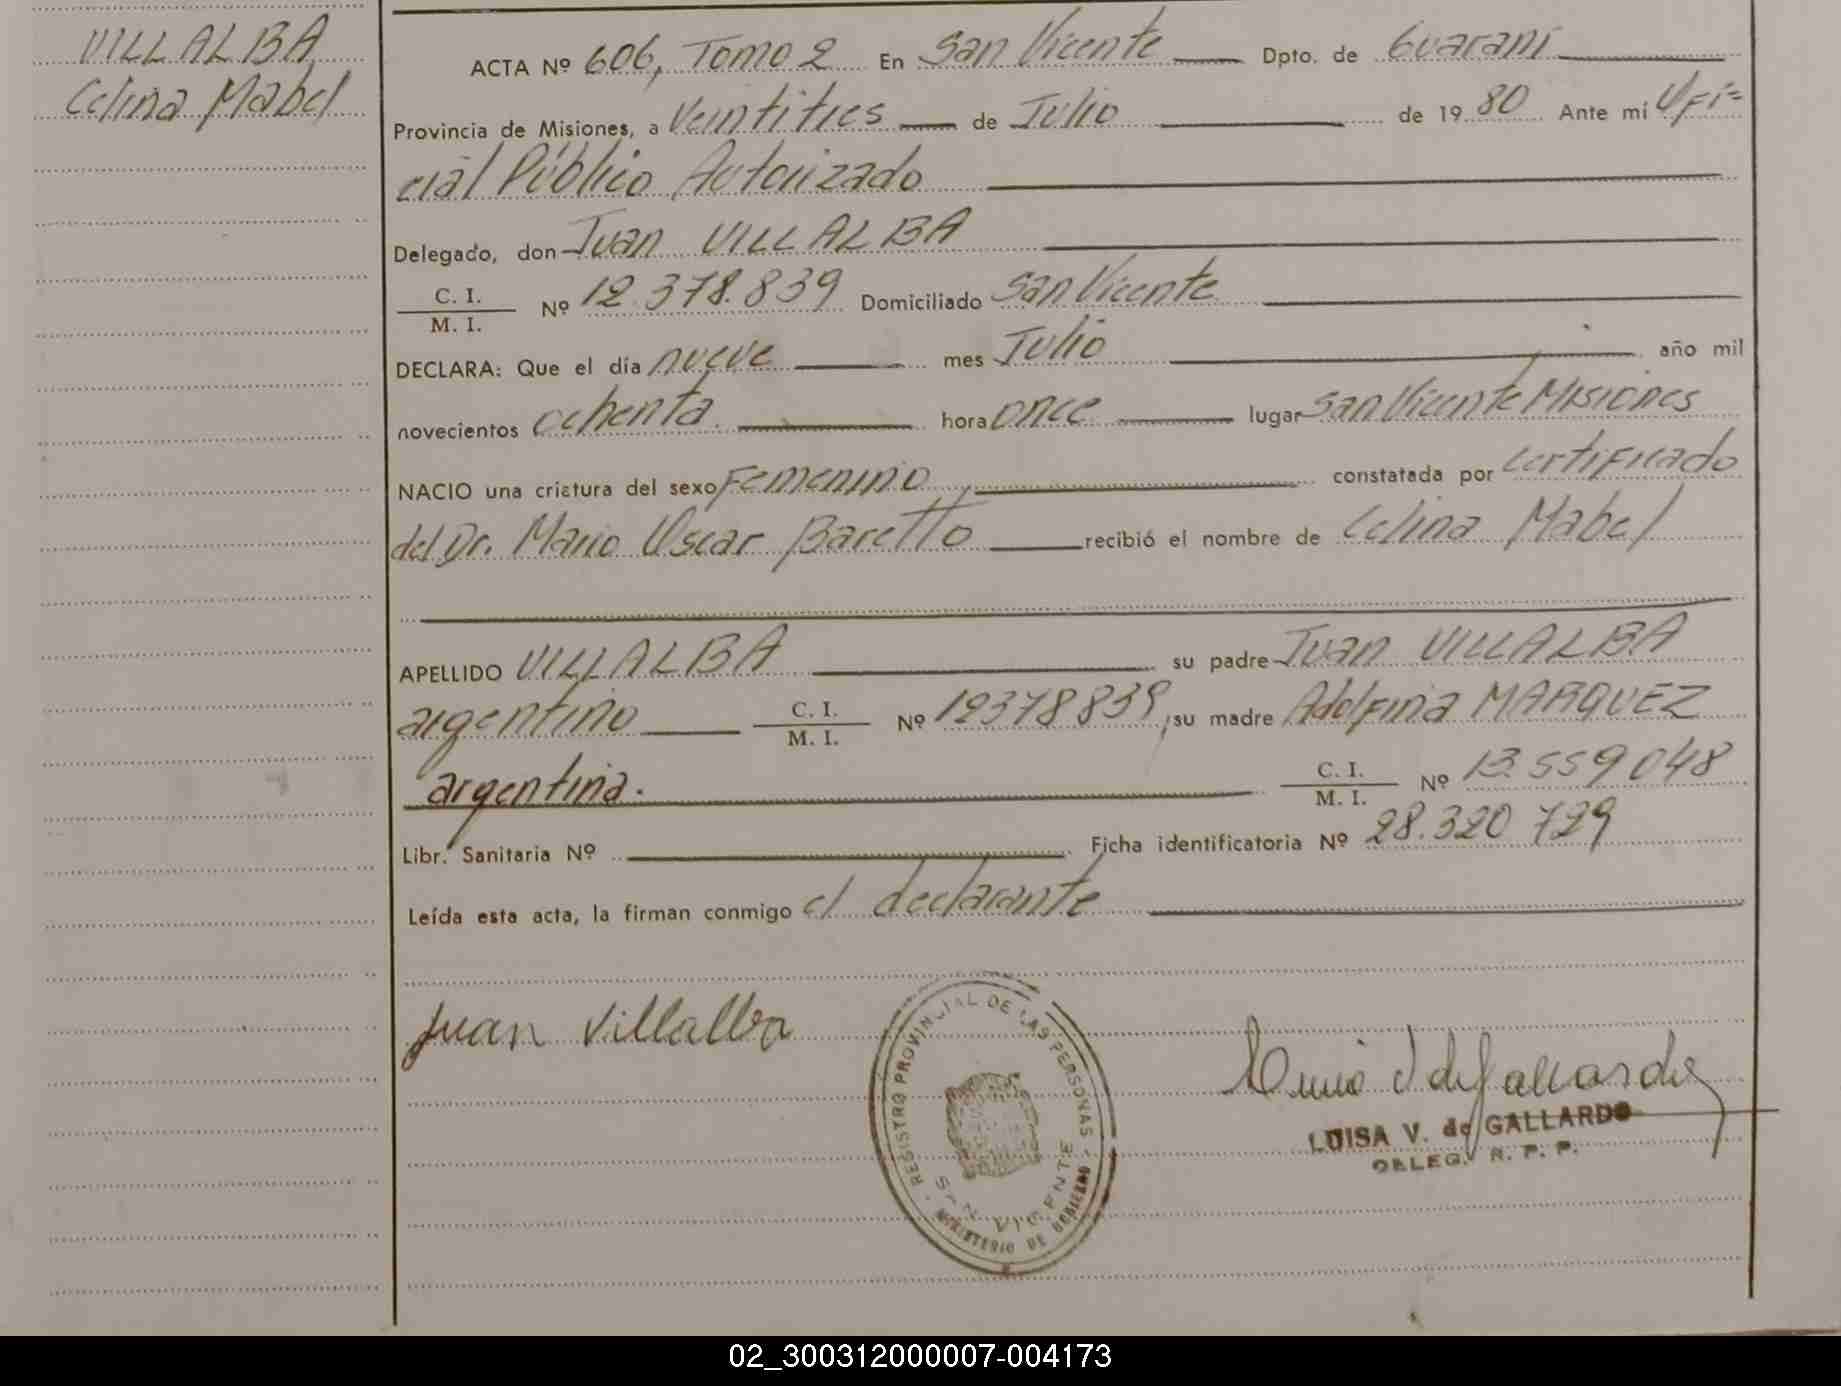 VILLALBA
Celina Mabel
ACTA Nº 606, Tomo 2 En San Vicente Dpto. de Guaraní
Provincia de Misiones, a Veintitres de Julio de 1980 Ante mí Ofi=
cial Público Autorizado
Delegado, don Juan VILLALBA
C. I.
M. I. Nº 12.378.839 Domiciliado San Vicente
DECLARA: Que el día nueve mes Julio año mil
novecientos ochenta hora once lugar San Vicente Misiones
NACIO una criatura del sexo Femenino, constatada por certificado
del Dr. Mario Oscar Baretto recibió el nombre de Celina Mabel
APELLIDO VILLALBA su padre Juan VILLALBA
argentino C. I.
M. I. Nº 12378839, su madre Adolfina MARQUEZ
argentina. C. I.
M. I. Nº 13.559048
Libr. Sanitaria Nº Ficha identificatoria Nº 28.320 729
Leída esta acta, la firman conmigo el declarante
Juan Villalba
REGISTRO PROVINCIAL DE LAS PERSONAS
SAN VICENTE
MINISTERIO DE GOBIERNO
LUISA V. de GALLARDO
DELEG. R. P. P.
02_300312000007-004173